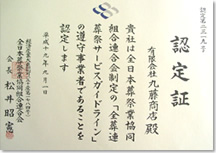 認定証
有限会社九藤商店殿
貴社は全日本葬祭業協同
組合連合会制定の「全葬連
葬祭サービスガイドライン」
の遵守事業者であることを
認定します
平成十九年九月一日
全日本葬祭業協同組合連合会
会長 松井昭憲